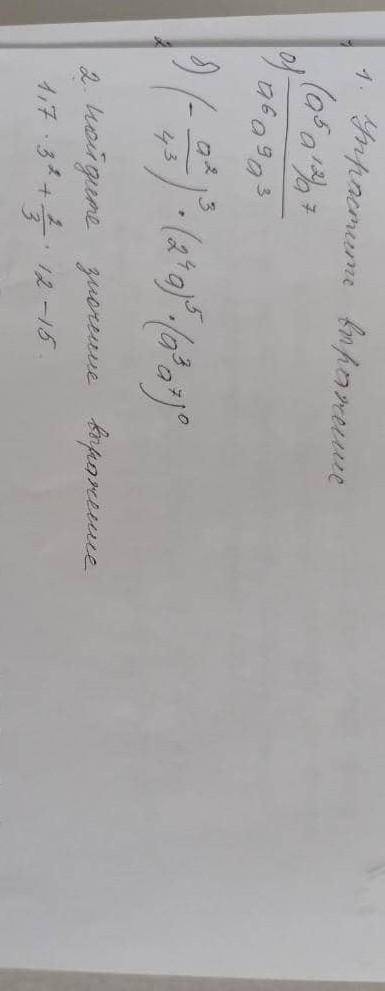 1. Упростить выражение
а) (a⁵a¹²)a⁷ / a⁶a⁹a³
б) (- a²/4³)³ · (2⁴a)⁵ · (a³a⁷)⁰
2. Найдите значение выражение
1,7 · 3² + 2/3 · 12 - 15.